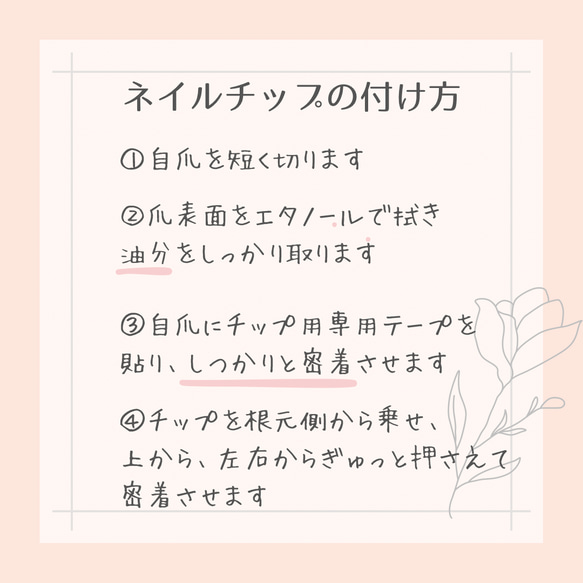 ネイルチップの付け方
①自爪を短く切ります
②爪表面をエタノールで拭き
油分をしっかり取ります
③自爪にチップ用専用テープを
貼り、しっかりと密着させます
④チップを根元側から乗せ、
上から、左右からぎゅっと押さえて
密着させます